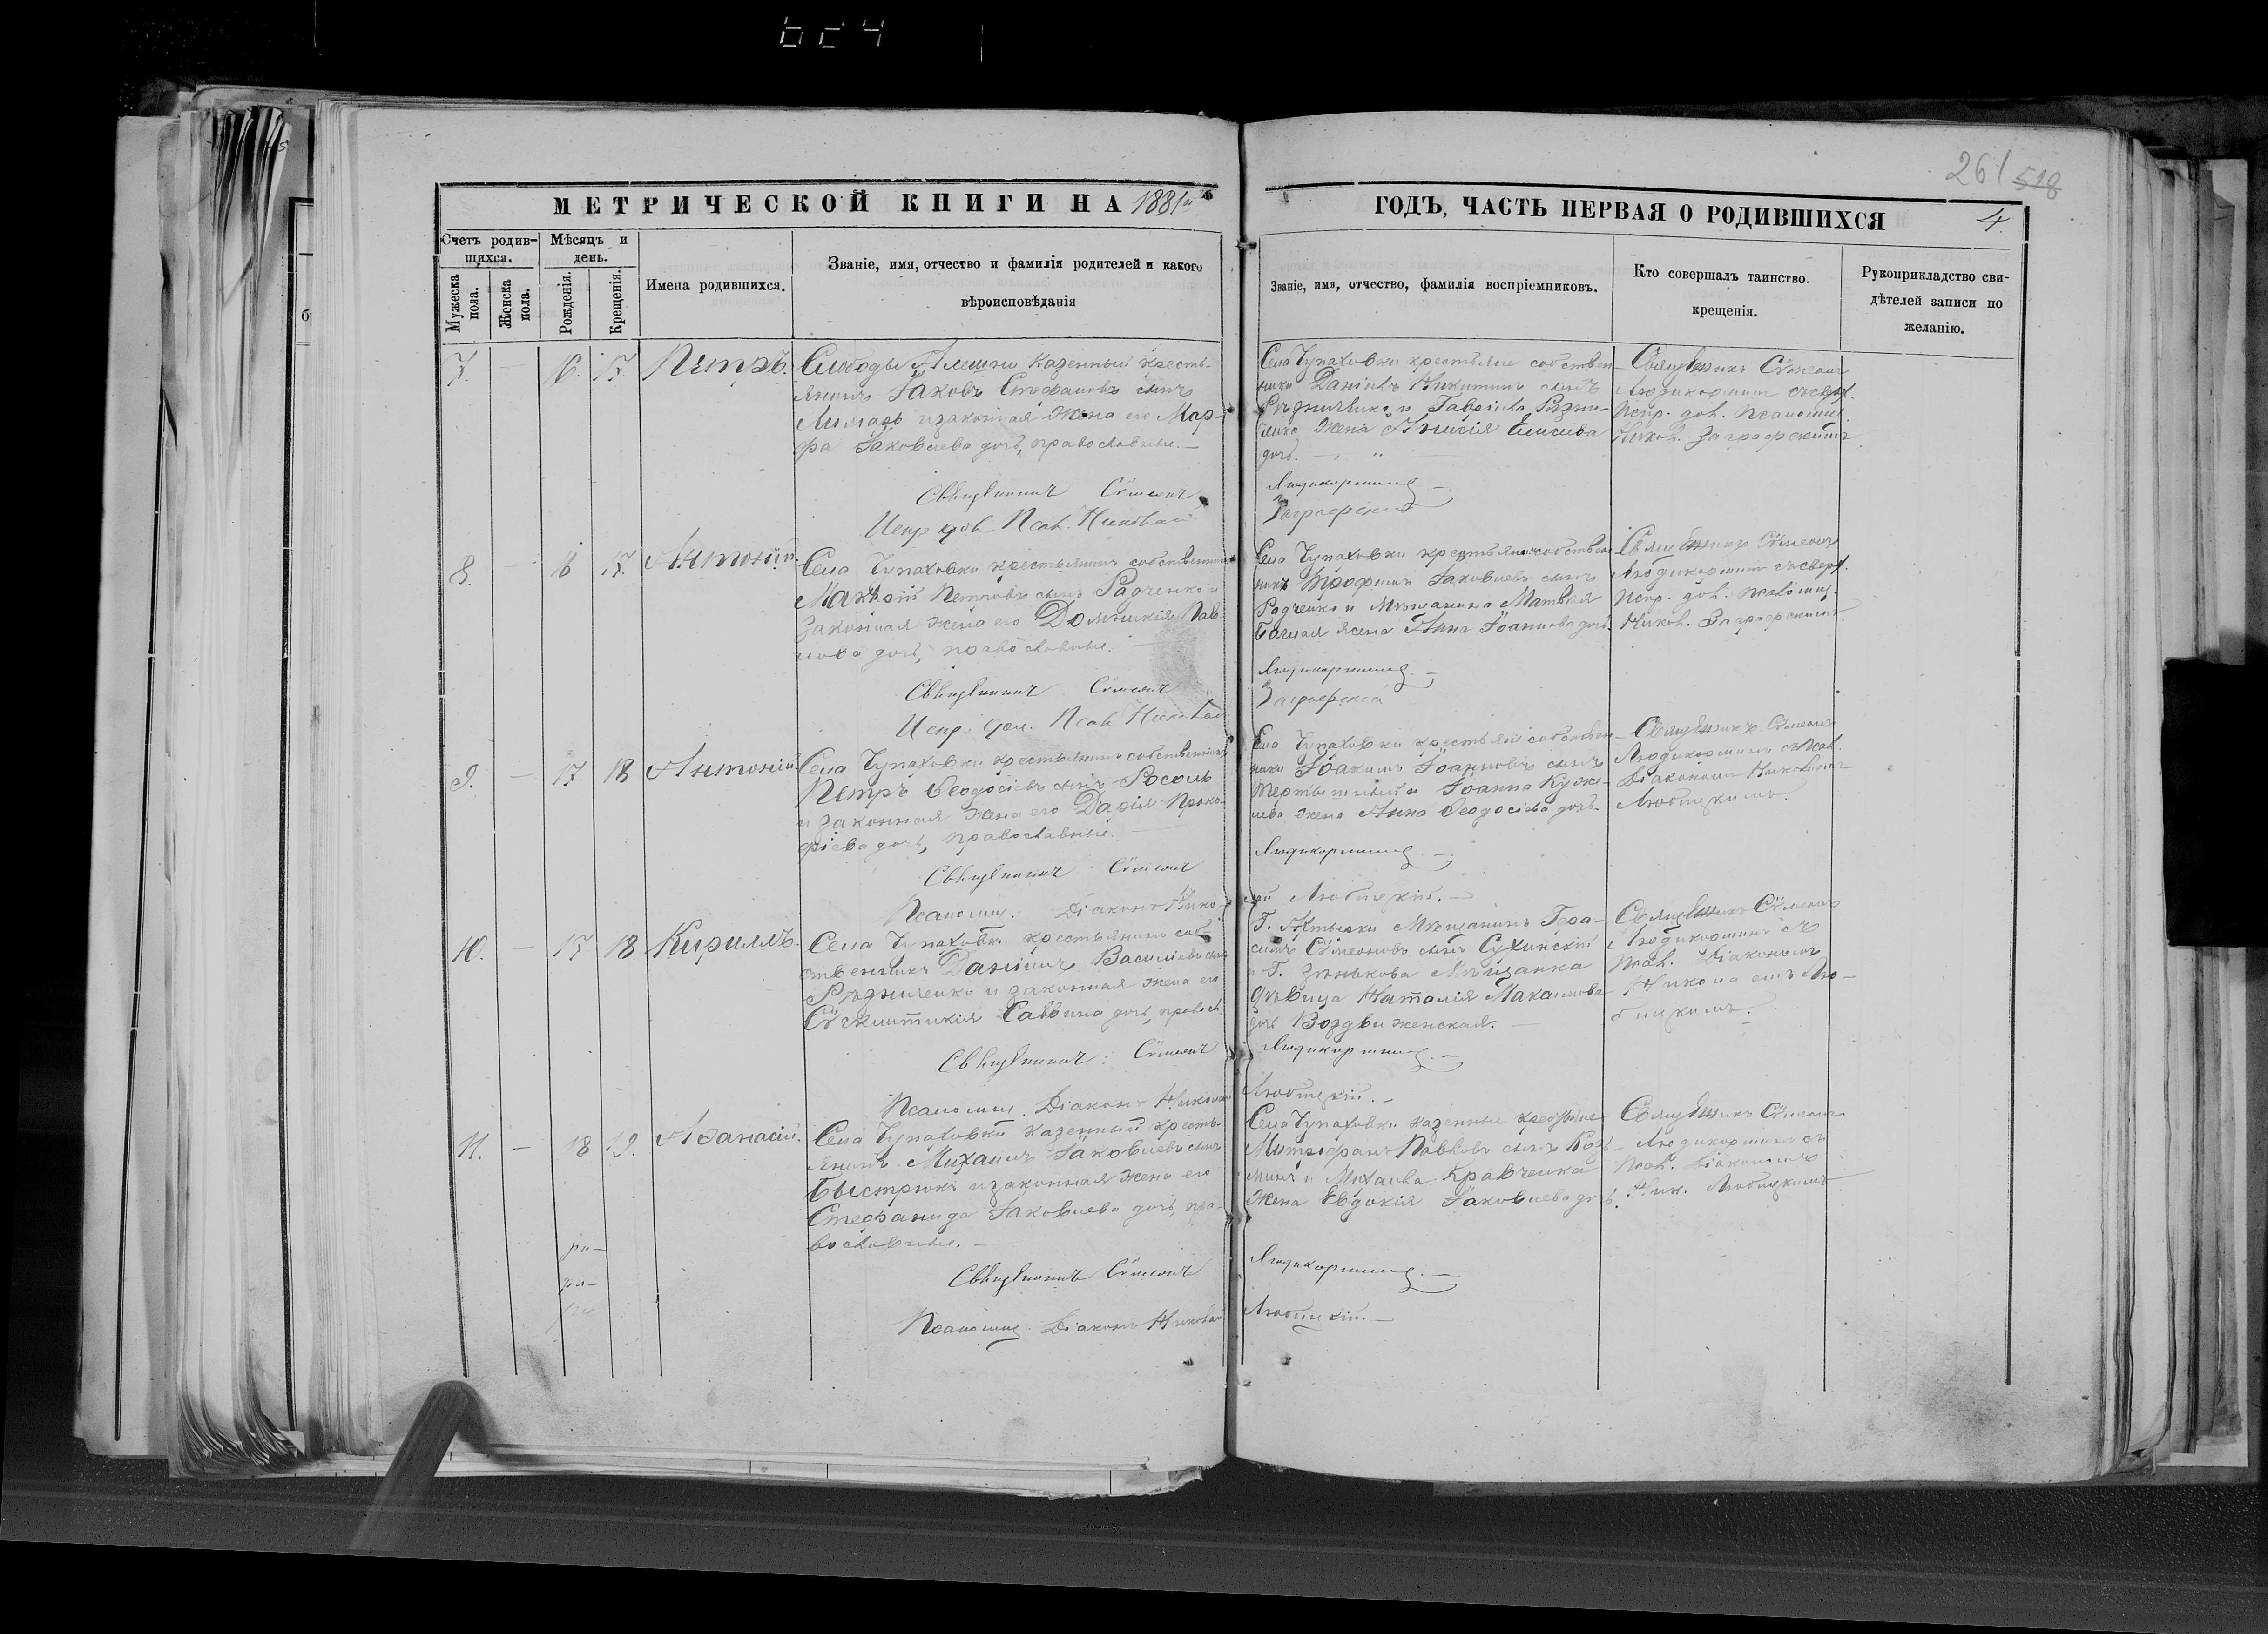 261 518
МЕТРИЧЕСКОЙ КНИГИ НА 1881й
ГОДЪ, ЧАСТЬ ПЕРВАЯ О РОДИВШИХСЯ
4
Счетъ родив-
шихся.
Мужеска пола.
Женска пола.
Мѣсяцъ и
день.
Рожденія.
Крещенія.
Имена родившихся.
Званіе, имя, отчество и фамилія родителей и какого
вѣроисповѣданія
Званіе, имя, отчество, фамилія воспріемниковъ.
Кто совершалъ таинство
крещенія.
Рукоприкладство сви-
дѣтелей записи по
желанію.
7. — 16. 17. Петръ.
Слободы Алешни казенный кресть-
янинъ Іаковъ Стефановъ сынъ
и законная жена его Мар-
фа Іаковлева дочь, православные. —
Священникъ Сѵмеонъ
Испр. дол. Псал. Николай
Села Чупаховки крестьяне собствен-
ники Даніилъ Никитинъ сынъ
Рѣзниченко и Гавріила Рѣзни-
ченка жена Анисія Елисеева
дочь. —
Людикорминъ. —
Заграфскій
Священникъ Сѵмеонъ
Людикорминъ съ сверх.
испр. дол. псаломщ.
Никол. Заграфскимъ
8. — 16 17. Антоній.
Села Чупаховки крестьянинъ собственникъ
Петровъ сынъ Радченко и
законная жена его Домникія Пав-
лова дочь, православные. —
Священникъ Сѵмеонъ
Испр. дол. Псал. Николай
Села Чупаховки крестьянинъ собствен-
никъ Трофимъ Іаковлевъ сынъ
Радченко и мѣщанина Матвія
жена Анна Іоаннова дочь.
Людикорминъ. —
Заграфскій
Священникъ Сѵмеонъ
Людикорминъ съ сверх.
испр. дол. псаломщ.
Никол. Заграфскимъ
9. — 17. 18 Антоній.
Села Чупаховки крестьянинъ собственникъ
Петръ Ѳеодосіевъ сынъ Росоль
и законная жена его Дарія Проко-
фіева дочь, православные. —
Священникъ Сѵмеонъ
Псаломщ. Діаконъ Нико-
Села Чупаховки крестьяне собствен-
ники Іоакимъ Іоанновъ сынъ
и Іоанна
жена Анна Ѳеодосіева дочь
Людикорминъ. —
лай Любицкій. —
Священникъ Сѵмеонъ
Людикорминъ съ псал.
Діакономъ Николаемъ
Любицкимъ.
10. — 17 18 Кириллъ.
Села Чупаховки крестьянинъ соб-
ственникъ Даніилъ Василіевъ сынъ
Рѣзниченко и законная жена его
Саввина дочь, правосл.
Священникъ Сѵмеонъ
Псаломщ. Діаконъ Николай
Г. Ахтырки мѣщанинъ Гера-
симъ Сѵмеоновъ сынъ Сухинскій
и Г. Зѣнькова мѣщанка
дѣвица Наталія Максимова
дочь Воздвиженская. —
Людикорминъ. —
Любицкій. —
Священникъ Сѵмеонъ
Людикорминъ съ
псал. Діакономъ
Николаемъ Лю-
бицкимъ.
11. — 18 19. Аѳанасій.
Села Чупаховки казенный кресть-
янинъ Михаилъ Іаковлевъ сынъ
Быстрюкъ и законная жена его
Стефанида Іаковлева дочь, пра-
вославные. —
Священникъ Сѵмеонъ
Псаломщ. Діаконъ Николай
Села Чупаховки казенные крестьяне
Митрофанъ Павловъ сынъ Коз-
минъ и Михаила Кравченка
жена Евдокія Іаковлева дочь.
Людикорминъ. —
Любицкій. —
Священникъ Сѵмеонъ
Людикорминъ съ
псал. Діакономъ
Ник. Любицкимъ